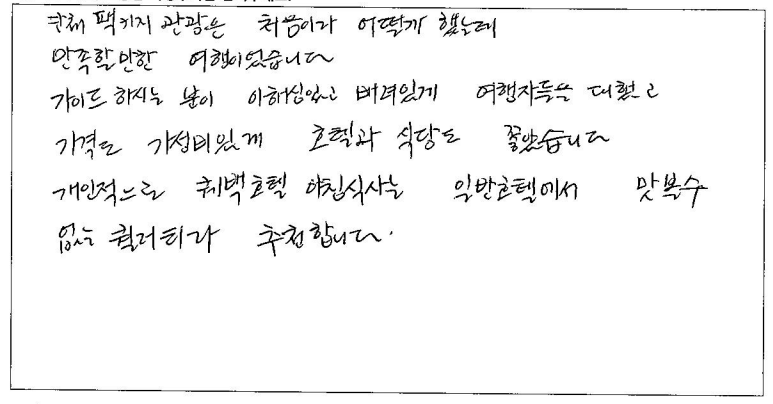 단체 팩키지 관광은 처음이라 어떨까 했는데
만족할만한 여행이었습니다
가이드 하시는 분이 이해심있고 배려있게 여행자들을 대했고
가격도 가성비있게 호텔과 식당도 좋았습니다
개인적으로 퀘백호텔 아침식사는 일반호텔에서 맛볼수
없는 퀄러티라 추천합니다.